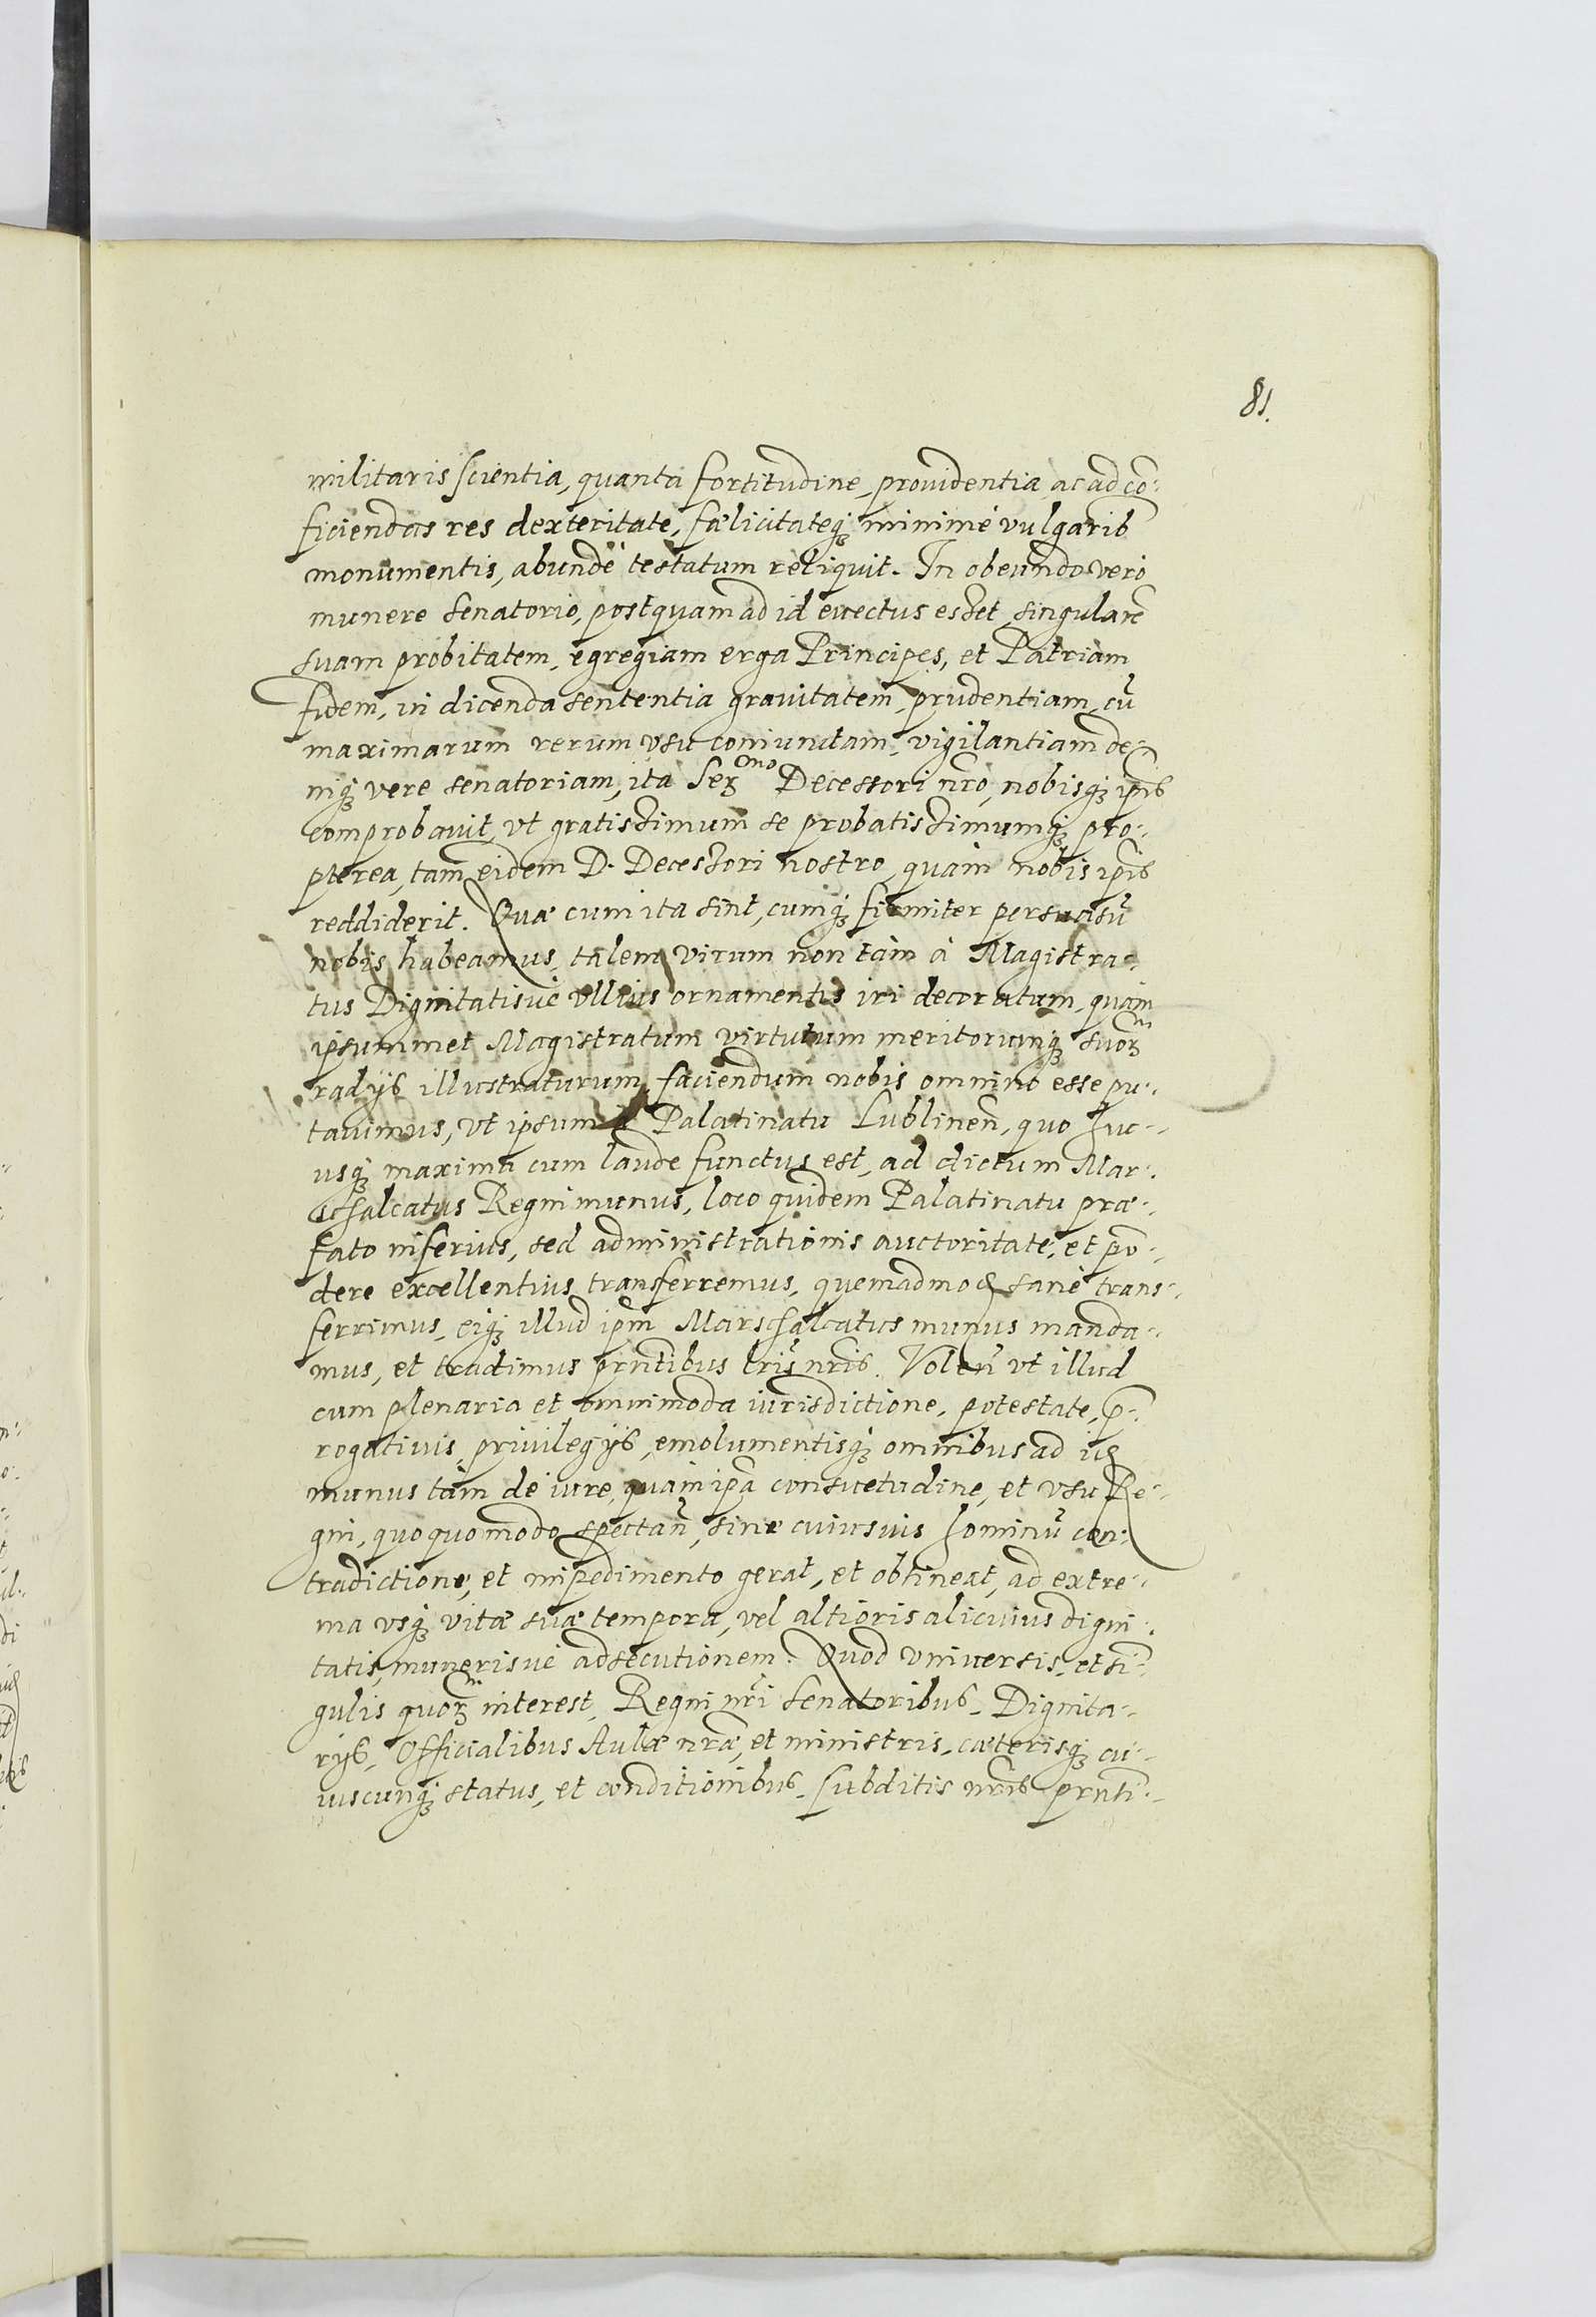 81.
militaris scientia, quanta fortitudine, prouidentia, ac ad cō-
ficiendas res dexteritate, fælicitateq₃ minimè vulgarib
monumentis, abundè testatum reliquit. In obeundo verò
munere senatorio, postquam ad id euectus esset, singularē
suam probitatem, egregiam erga Principes, et Patriam
fidem, in dicenda sententia grauitatem, prudentiam, cū
maximarum rerum vsu coniunctam, vigilantiam de-
niq₃ vere senatoriam, ita Ser^mo Decessori nr̃o, nobisq₃ ip̃is
comprobauit, vt gratissimum se probatissimumq₃ pro-
pterea, tam eidem D. Decessori nostro, quàm nobis ip̃is
reddiderit. Quæ cum ita sint, cumq₃ firmiter persuasū
nobis habeamus, talem virum non tàm à Magistra-
tus Dignitatisuè vllius ornamentis iri decoratum, quàm
ipsummet Magistratum virtutum meritorumq₃ suor^m
radijs illustraturum, faciendum nobis omnino esse pu-
tauimus, vt ipsum à Palatinatu Lublinen̄, quo huc-
usq₃ maxima cum laude functus est, ad dictum Mar-
schalcatus Regni munus, loco quidem Palatinatu præ-
fato inferius, sed administrationis auctoritate, et pō-
dere excellentius transferremus, quemadmod sanè trans-
ferrimus, eiq₃ illud ip̃m Marschalcatus munus manda-
mus, et tradimus prn̄tibus lrı̃s nr̃is. Volen̄ vt illud
cum plenaria et omnimoda iurisdictione, potestate, p̄-
rogatiuis, priuilegijs, emolumentisq₃ omnibus ad id
munus tàm de iure, quàm ip̃a consuetudine, et vsu Re-
gni, quoquomodo spectan̄, sine cuiusuis hominū con-
tradictione, et impedimento gerat, et obtineat, ad extre-
ma vsq₃ vitæ suæ tempora, vel altioris alicuius digni-
tatis, munerisuè adsecutionem. Quod vniuersis, et sī-
gulis quor^m interest, Regni nr̃i Senatoribus, Dignita-
rijs, Officialibus Aulæ nr̃æ, et ministris, cæterisq₃ cu-
iuscunq₃ status, et conditionibus, subditis nr̃is prn̄ti-